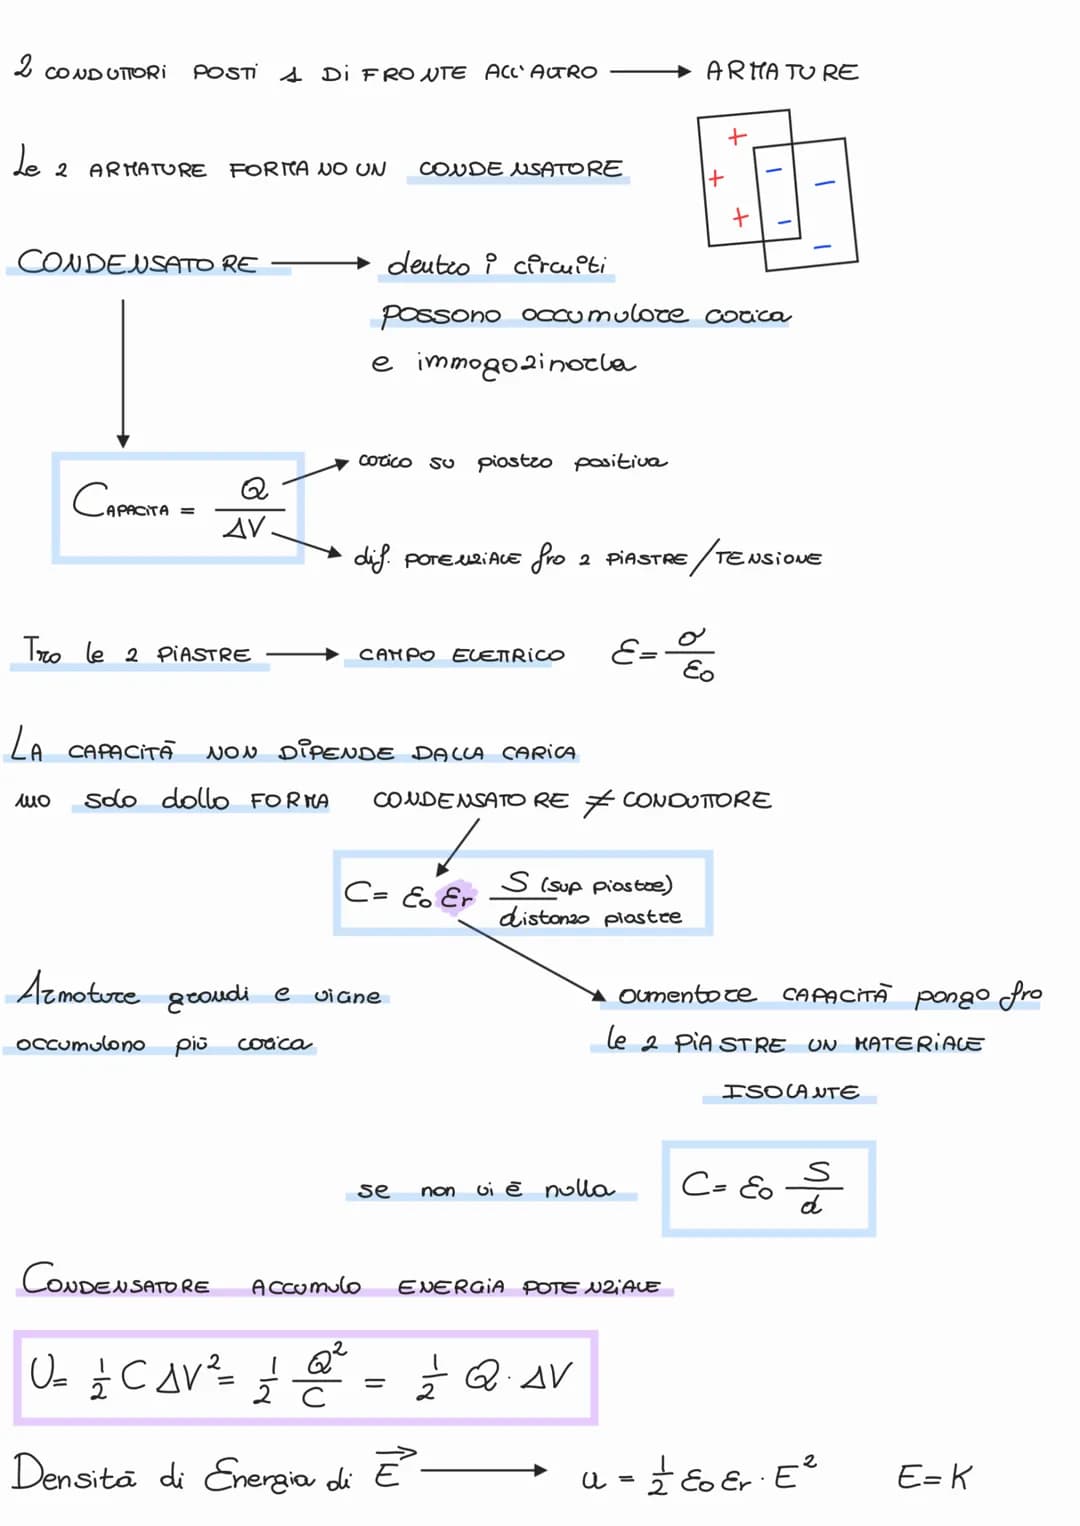 2 CONDUTTORI POSTI 1 DI FRONTE ALL'ALTRO → ARMATURE
Le 2 ARMATURE FORMANO UN CONDENSATORE
+ + + − − − −
CONDENSATORE → dentro i circuiti
possono accumulare carica
e immagazzinarla
CAPACITA = Q/ΔV
carica su piastra positiva
dif. POTENZIALE fra 2 PIASTRE/TENSIONE
Tra le 2 PIASTRE → CAMPO ELETTRICO E = σ/ε0
LA CAPACITÀ NON DIPENDE DALLA CARICA
ma solo dalla FORMA CONDENSATORE ≠ CONDUTTORE
C = ε0 εr S (sup piastre) / distanza piastre
Armature grandi e vicine
accumulano più carica
aumentare CAPACITÀ pongo fra
le 2 PIASTRE UN MATERIALE
ISOLANTE
se non vi è nulla C = ε0 S/d
CONDENSATORE ACCUMULA ENERGIA POTENZIALE
U = 1/2 C ΔV² = 1/2 Q²/C = 1/2 Q · ΔV
Densità di Energia di E⃗ → u = 1/2 ε0 εr · E² E = K